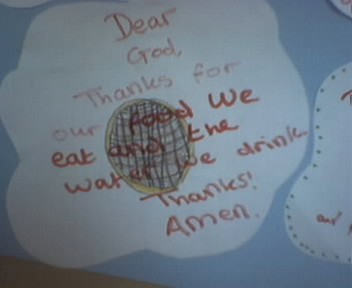 Dear
God,
Thanks for
our food we
eat and the
water we drink
Thanks!
Amen.